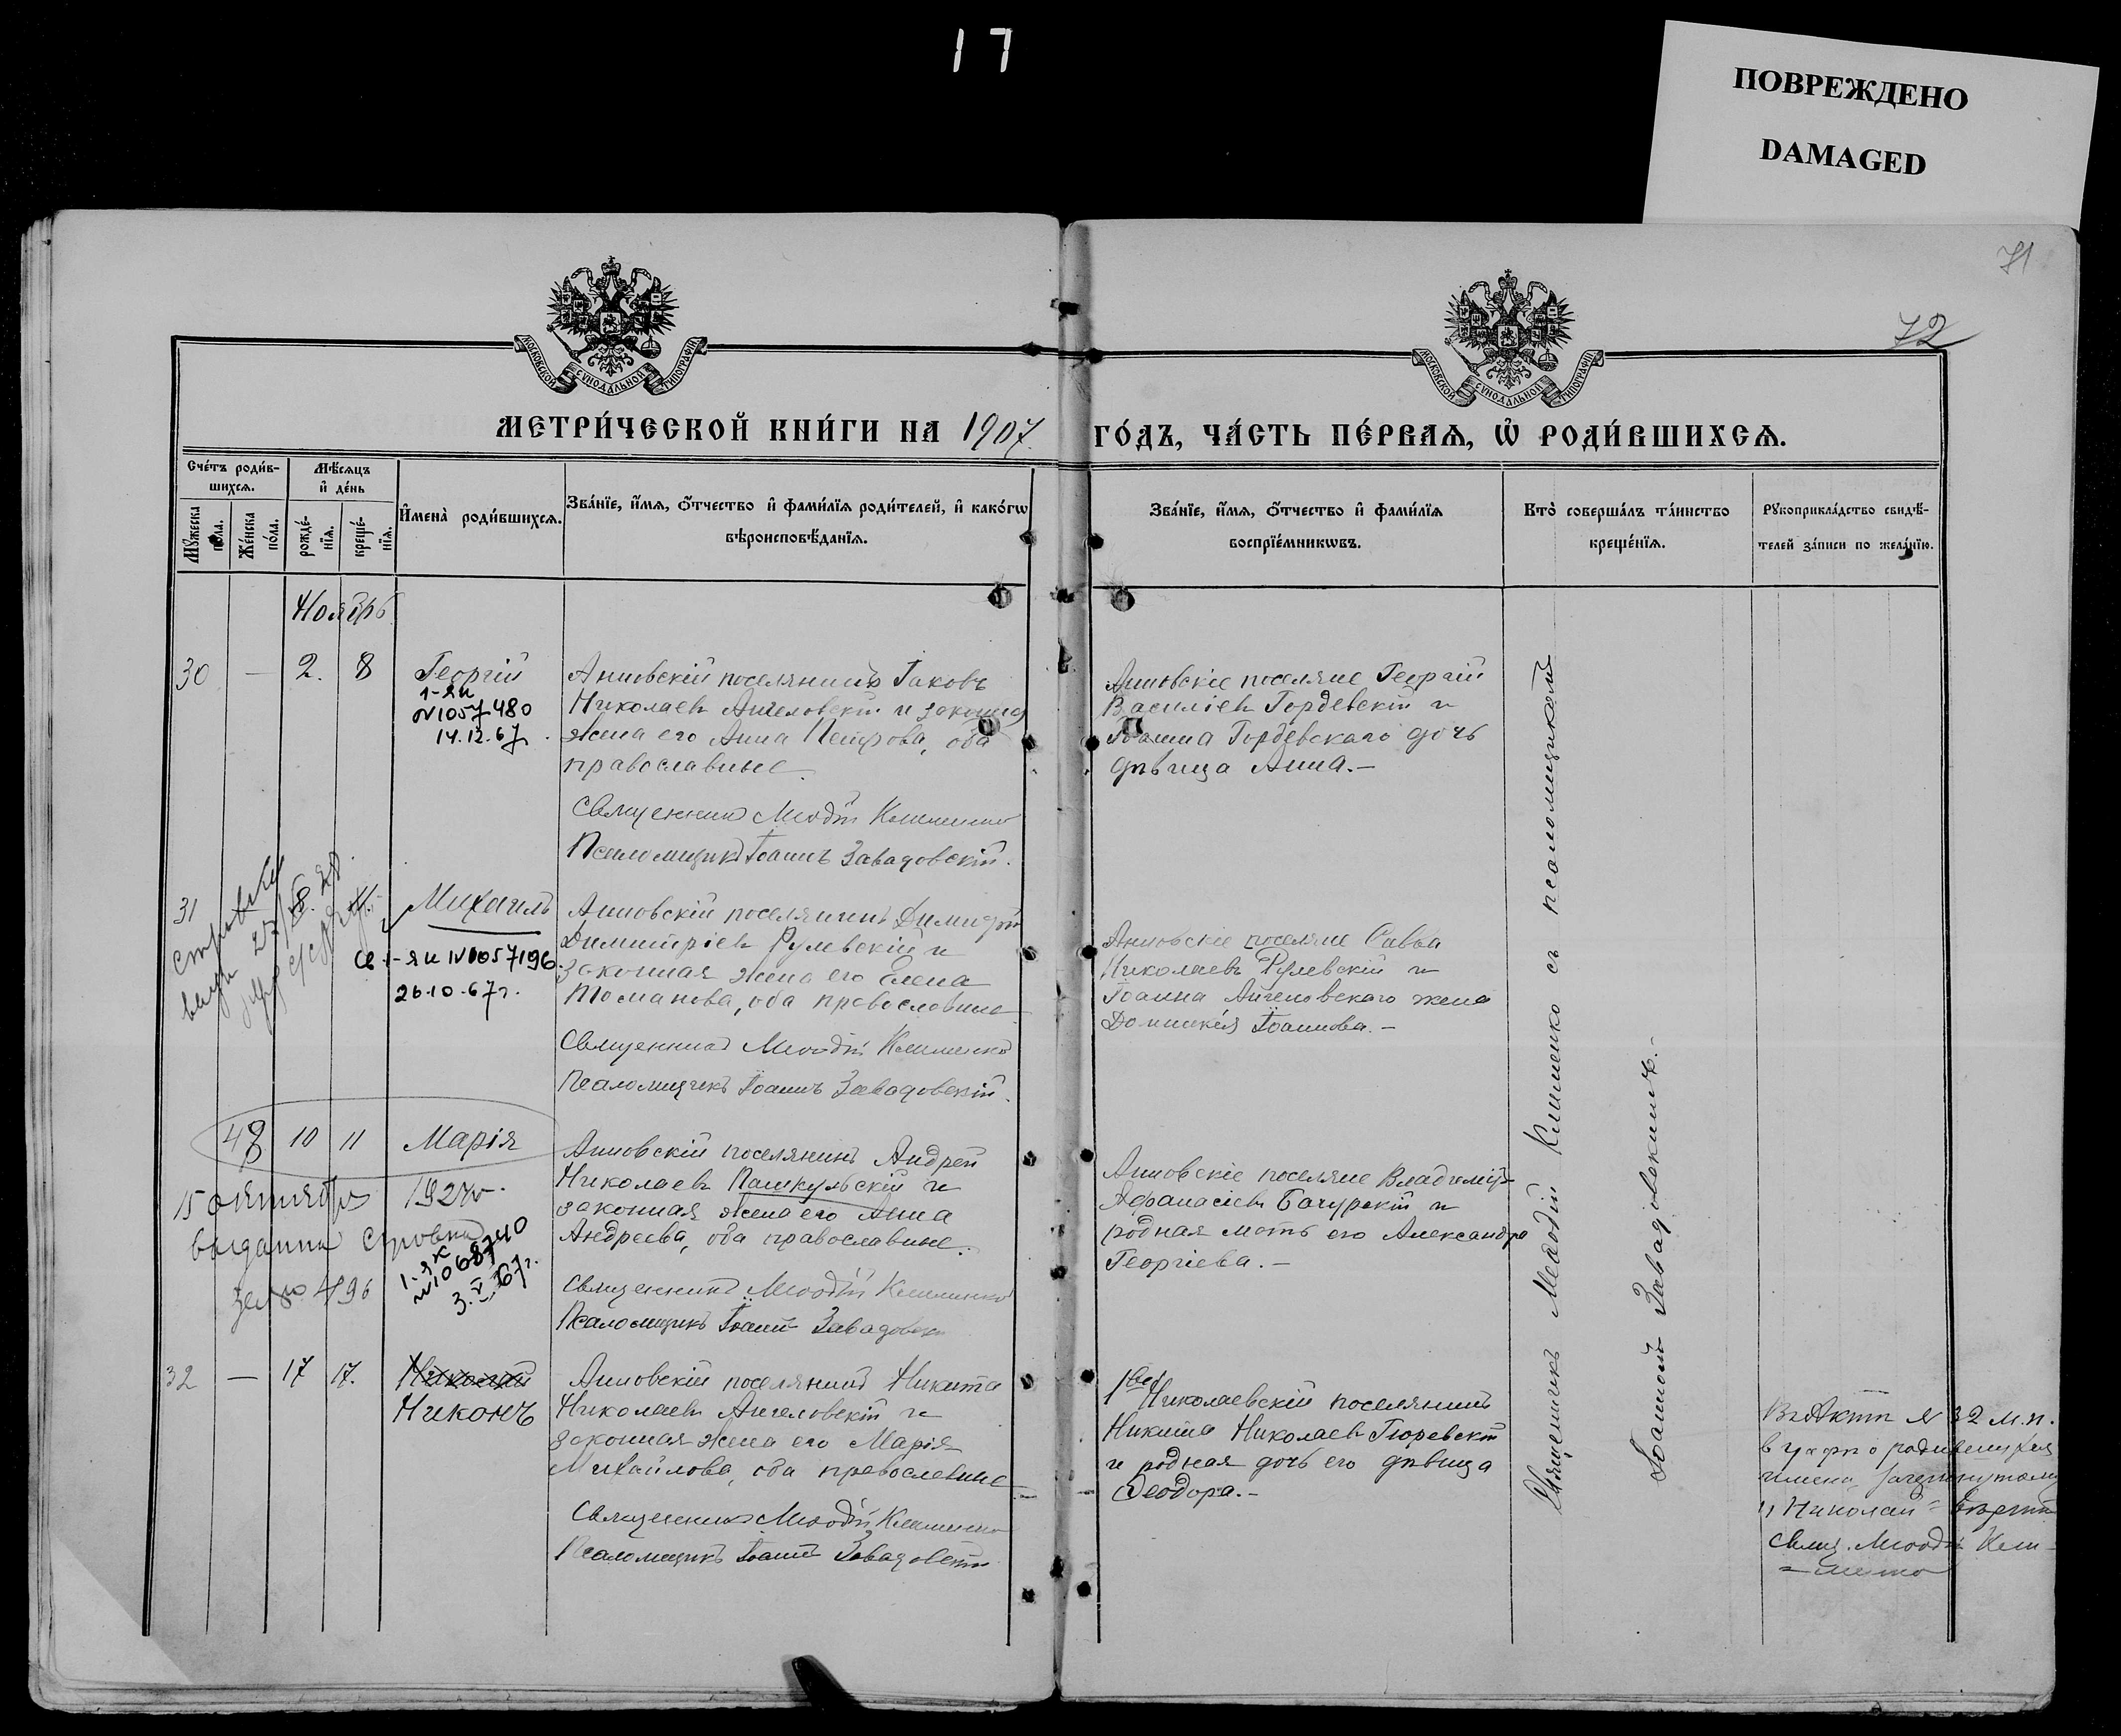 17
ПОВРЕЖДЕНО
DAMAGED
71
72
МОСКОВСКОЙ СѴНОДАЛЬНОЙ ТИПОГРАФІИ
МОСКОВСКОЙ СѴНОДАЛЬНОЙ ТИПОГРАФІИ
МЕТРИ́ЧЕСКОЙ КНИ́ГИ НА 1907.
ГО́ДЪ, ЧА́СТЬ ПЕ́РВАѦ, Ѡ҆ РОДИ́ВШИХСѦ.
Сче́тъ роди́в-
шихсѧ.
Мѣ́сѧцъ
и҆ де́нь
Мꙋжеска
по́ла.
Же́нска
по́ла.
рожде́-
нїѧ.
креще́-
нїѧ.
И҆мена̀ роди́вшихсѧ.
Зва́нїе, и҆́мѧ, ѻ҆́тчество и҆ фами́лїѧ роди́телей, и҆ како́гѡ
вѣроисповѣ́данїѧ.
Зва́нїе, и҆́мѧ, ѻ҆́тчество и҆ фами́лїѧ
воспрїе́мникѡвъ.
Кто̀ соверша́лъ та́инство
креще́нїѧ.
Рꙋкоприкла́дство свидѣ́-
телей за́писи по жела́нїю.
Ноябрь
30 — 2. 8 Георгій
1-яи
№1057480
14.12.67
Анновскій поселянинъ Іаковъ
Николаевъ Ангеловскій и законная
жена его Анна Петрова, оба
православные.
Священникъ Меѳодій Клименко
Псаломщикъ Іоаннъ Завадовскій.
Анновскіе поселяне Георгій
Василіевъ Гордѣевскій и
Іоанна Гордѣевскаго дочь
дѣвица Анна.—
31
Михаилъ
св 1-яи №1057196.
26.10.67г.
Анновскій поселянинъ
Димитріевъ Рулевскій и
законная жена его Елена
Романова, оба православные
Священникъ Меѳодій Клименко
Псаломщикъ Іоаннъ Завадовскій.
Анновскіе поселяне Савва
Николаевъ Рулевскій и
Іоанна Ангеловскаго жена
Доминикія Іоаннова.—
48 10 11 Марія
15 октября 1927г.
выданна справка
за № 496
1.як
№1068740
3.V.67г.
Анновскій поселянинъ Андрей
Николаевъ Пашкульскій и
законная жена его Анна
Андреева, оба православные.
Священникъ Меѳодій Клименко
Псаломщикъ Іоаннъ Завадовскій
Анновскіе поселяне Владиміръ
Аѳанасіевъ Бачурскій и
родная мать его Александра
Георгіева.—
32 — 17 17. Николай
Никонъ
Анновскій поселянинъ Никита
Николаевъ Ангеловскій и
законная жена его Марія
Михайлова, оба православные
Священникъ Меѳодій Клименко
Псаломщикъ Іоаннъ Завадовскій
1во Николаевскій поселянинъ
Никита Николаевъ
и родная дочь его дѣвица
Ѳеодора.—
Священникъ Меѳодій Клименко съ псаломщикомъ
Іоанномъ Завадовскимъ.—
Въ Актѣ № 32 м.п.
въ графѣ о родившихся
имени зачеркнутому
"Николай" вѣрить
Свящ. Меѳодій Кли-
=менко